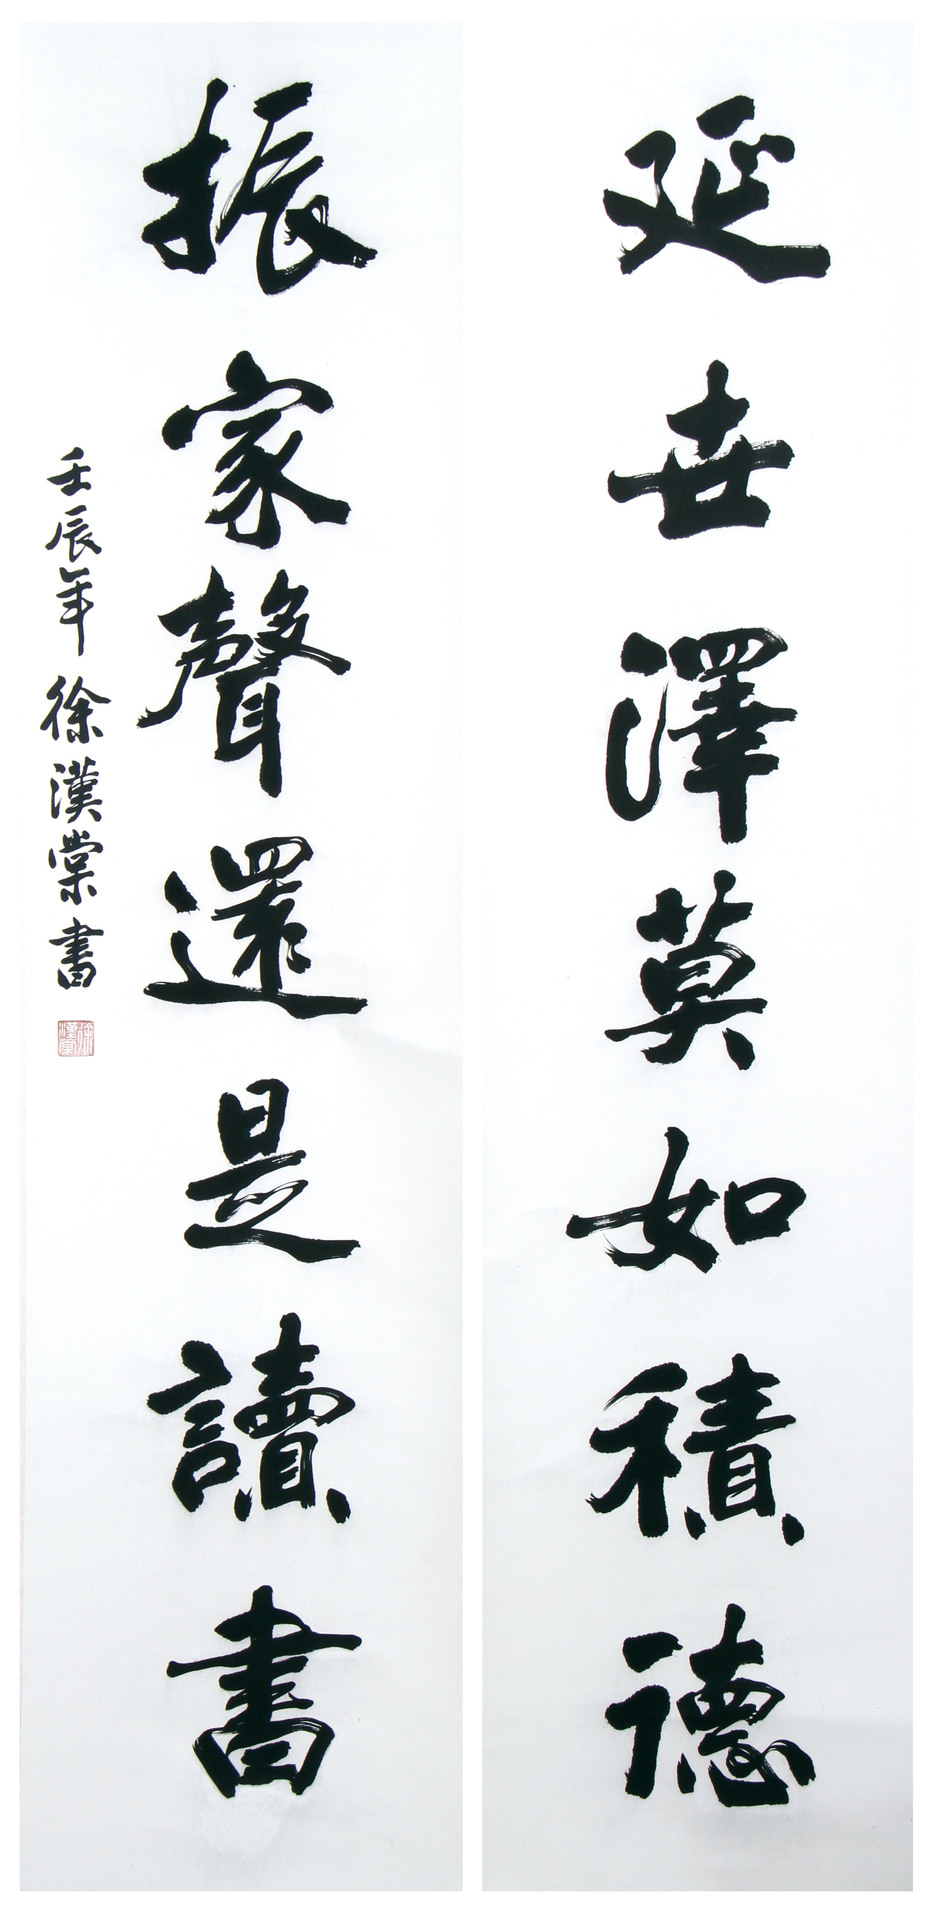 延世澤莫如積德
振家聲還是讀書
壬辰年徐漢棠書
徐漢棠